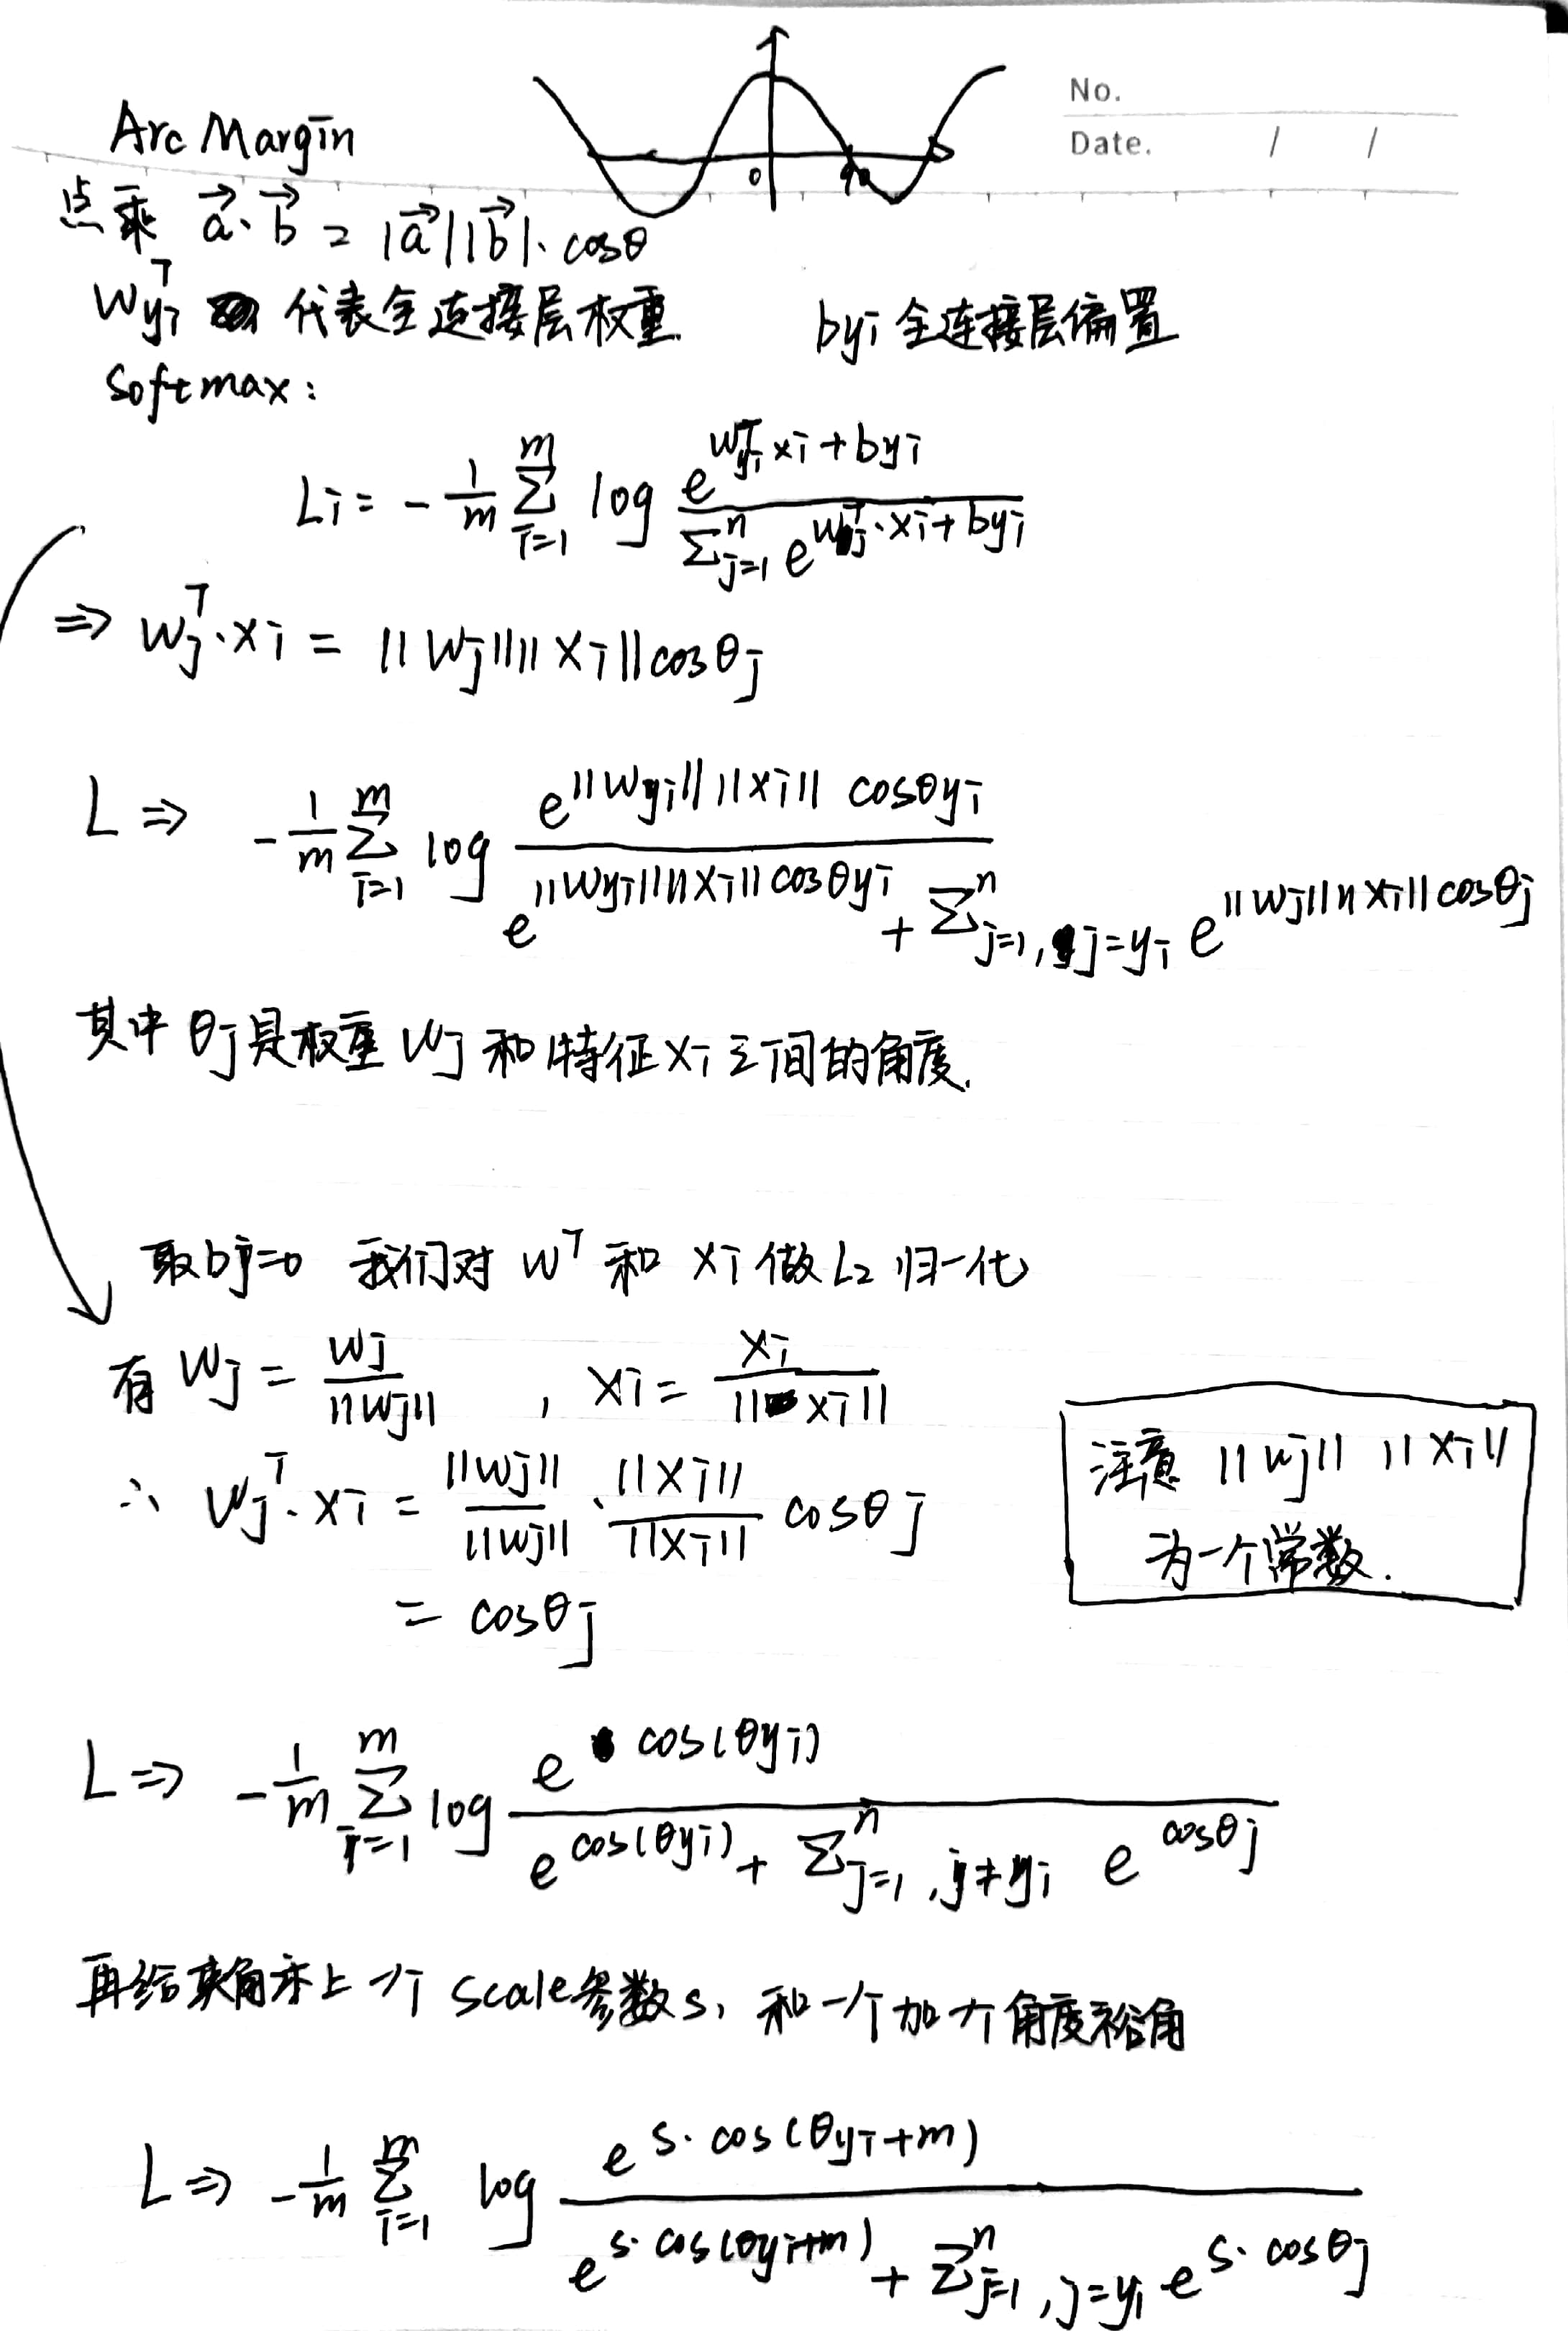 No.
Date. / /
Arc Margin
0
点乘 a⃗·b⃗ = |a⃗||b⃗|·cosθ
Wyi^T 代表全连接层权重 byi 全连接层偏置
Softmax:
Li = -1/m Σ_{i=1}^{m} log e^{Wyi^T xi + byi} / Σ_{j=1}^{n} e^{Wj^T·xi + byi}
⇒ Wj^T·xi = ||Wj||||xi||cosθj
L ⇒ -1/m Σ_{i=1}^{m} log e^{||Wyi||||xi|| cosθyi} / (e^{||Wyi||||xi||cosθyi} + Σ_{j=1, j=yi}^{n} e^{||Wj||||xi||cosθj})
其中 θj是权重 Wj 和特征xi之间的角度.
取bj=0 我们对 W^T 和 xi 做L2 归一化
有 Wj = Wj / ||Wj|| , xi = xi / ||xi||
∴ Wj^T·xi = ||Wj|| / ||Wj|| · ||xi|| / ||xi|| cosθj
= cosθj
注意 ||Wj|| ||xi||
为一个常数.
L ⇒ -1/m Σ_{i=1}^{m} log e^{cos(θyi)} / (e^{cos(θyi)} + Σ_{j=1, j≠yi}^{n} e^{cosθj})
再给夹角乘上一个 scale参数s, 和一个加个角度裕角
L ⇒ -1/m Σ_{i=1}^{m} log e^{s·cos(θyi+m)} / (e^{s·cos(θyi+m)} + Σ_{j=1, j=yi}^{n} e^{s·cosθj})